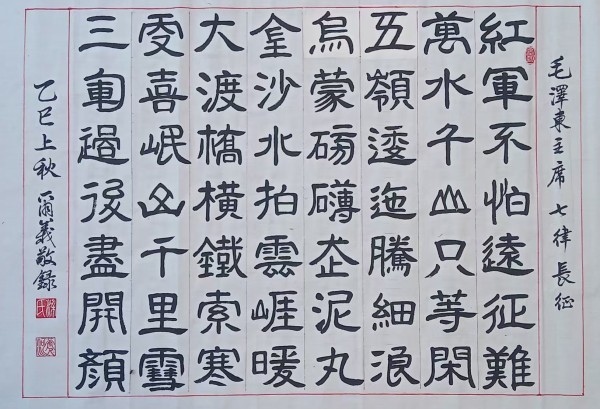 毛澤東主席 七律 長征
紅軍不怕遠征難
萬水千山只等閑
五嶺逶迤騰細浪
烏蒙磅礴走泥丸
金沙水拍雲崕暖
大渡橋橫鐵索寒
更喜岷山千里雪
三軍過後盡開顏
乙巳上秋 爾義敬錄